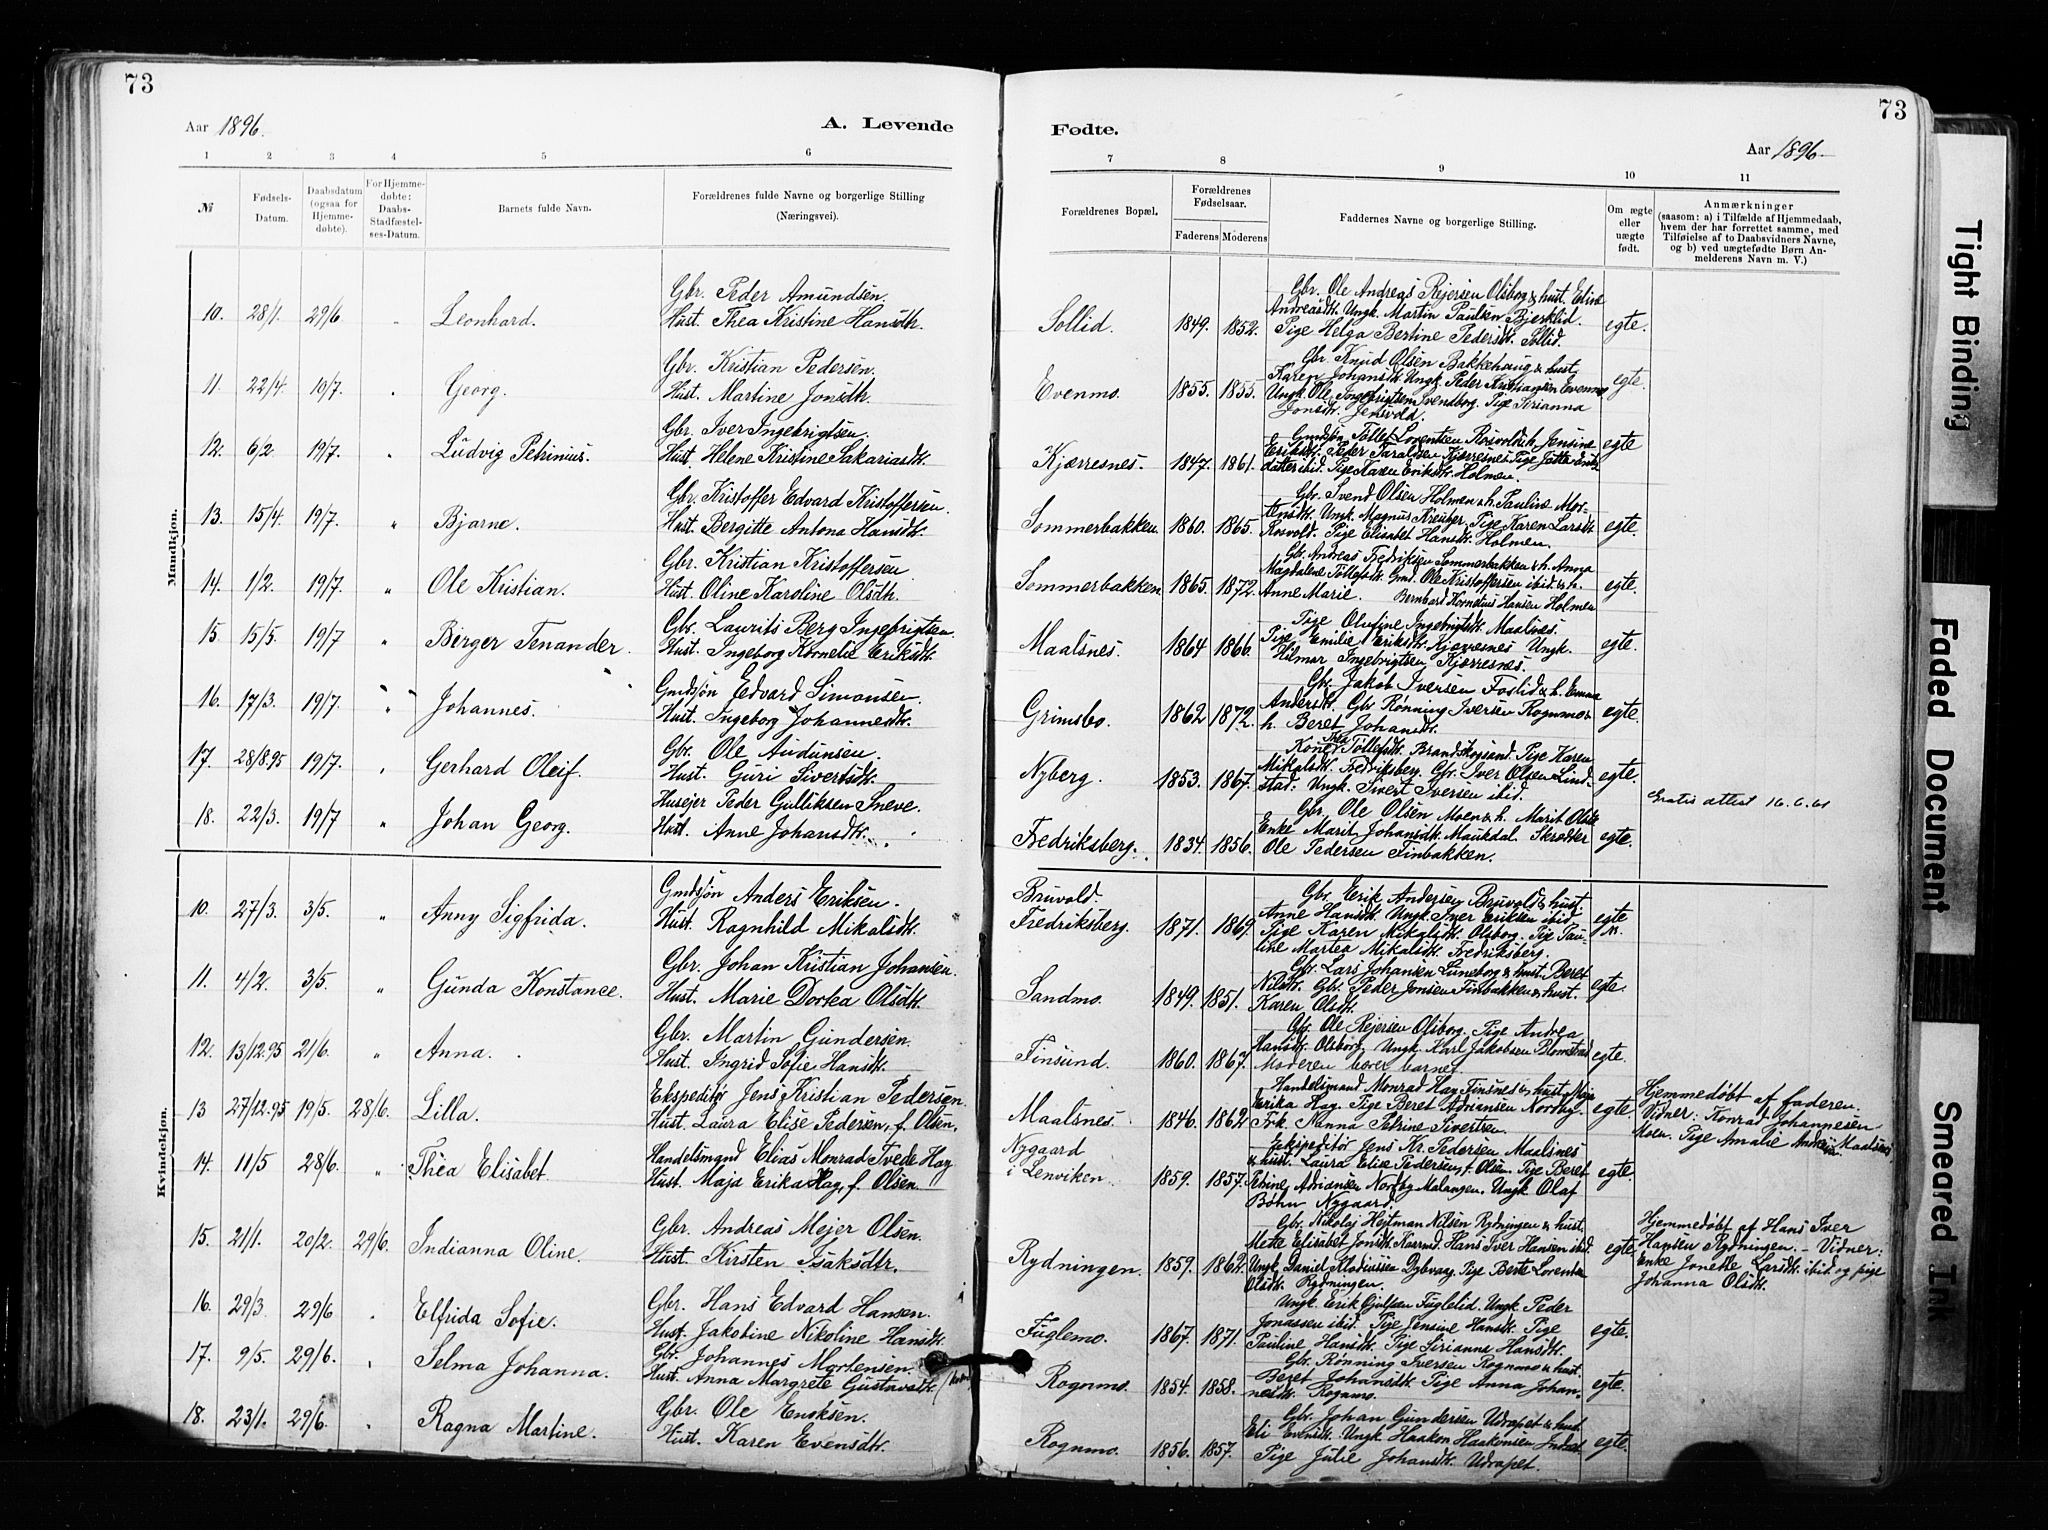 73
73
Aar 1896.
A. Levende
Fødte.
Aar 1896
1 2 3 4 5 6 7 8 9 10 11
№
Fødsels-Datum.
Daabsdatum (ogsaa for Hjemmedøbte).
For Hjemmedøbte: Daabs-Stadfæstelses-Datum.
Barnets fulde Navn.
Forældrenes fulde Navne og borgerlige Stilling (Næringsvei).
Forældrenes Bopæl.
Forældrenes Fødselsaar.
Faderens Moderens
Faddernes Navne og borgerlige Stilling.
Om ægte eller uægte født.
Anmærkninger
(saasom: a) i Tilfælde af Hjemmedaab, hvem der har forrettet samme, med Tilføielse af to Daabsvidners Navne, og b) ved uægtefødte Børn Anmelderens Navn m. V.)
Mandkjøn.
10. 28/1. 29/6 Leonhard.
Gbr. Peder Amundsen.
Hust. Thea Kristine Hansdtr.
Sollid. 1849. 1852.
Gbr. Ole Andreas Rejersen Olsborg & hust. Elise
Andreasdtr. Ungk. Martin Paulsen Bjerklid.
Pige Helga Bertine Pedersdtr. Sollid.
egte.
11. 22/4. 10/7. Georg.
Gbr. Kristian Pedersen.
Hust. Martine Jonsdtr.
Evenmo. 1855. 1855.
Gbr. Knud Olsen Bakkehaug & hust.
Karen Johansdtr. Ungk. Peder Kristiansen Evenmo
Ungk. Ole Ingebrigtsen Svendborg. Pige Sirianna
Jonsdtr. Jensvold.
egte.
12. 6/2. 19/7. Ludvig Petrinius.
Gbr. Iver Ingebrigtsen.
Hust. Helene Kristine Sakariasdtr.
Kjærresnes. 1847. 1861.
Gmdsjøn Tollef Lorentsen Rosvold & h. Jensine
Eriksdtr. Peder Taraldsen Kjærresnes. Pige Jette Eriks
datter ibid. Pige Karen Eriksdtr. Holmen.
egte
13. 15/4. 19/7. " Bjarne.
Gbr. Kristoffer Edvard Kristoffersen.
Hust. Bergitte Antona Hansdtr.
Sommerbakken. 1860. 1865.
Gbr. Svend Olsen Holmen & h. Pauline Mor-
tensdtr. Ungk. Magnus Kreutzer. Pige Karen Larsdtr.
Rosvold. Pige Elisabet Hansdtr. Holmen.
egte.
14. 1/2. 19/7. " Ole Kristian.
Gbr. Kristian Kristoffersen
Hust. Oline Karoline Olsdtr.
Sommerbakken 1865. 1872.
Gbr. Andreas Fredriksen Sommerbakken & h. Anna
Magdalene Tollefsdtr. Gmd. Ole Kristoffersen ibid & h.
Anne Marie. Bernhard Kornelius Hansen Holmen
egte.
15. 15/5. 19/7 " Birger Tenander.
Gbr. Laurits Berg Ingebrigtsen.
Hust. Ingeborg Kornelie Eriksdtr.
Maalsnes. 1864 1866.
Pige Olufine Ingebrigtsdtr. Maalsnes.
Pige Emilie Eriksdtr. Kjærresnes Ungk.
Hilmar Ingebrigtsen Kjærresnes.
egte.
16. 17/3. 19/7. " Johannes.
Gmdsjøn Edvard Simonsen.
Hust. Ingeborg Johannesdtr.
Grimsbo. 1862 1872.
Gbr. Jakob Iversen Foslid & h. Emma
Andersdtr. Gbr. Rønning Iversen Rognmo &
h. Beret Johansdtr.
egte.
17. 28/8.95 19/7. Gerhard Oleif.
Gbr. Ole Audunsen.
Hust. Guri Sivertsdtr.
Nyberg. 1853. 1867.
Kone Thea Tollefsdtr. Brandskogsand. Pige Karen
Mikalsdtr. Fredriksberg. Gbr. Iver Olsen Lind-
stad. Ungk. Sivert Iversen ibid.
egte.
18. 22/3. 19/7 " Johan Georg.
Husejer Peder Gulliksen Sneve.
Hust. Anne Johansdtr.
Fredriksberg. 1834. 1856.
Gbr. Ole Olsen Moen & h. Marit Olsdtr
Enke Marit Johansdtr. Maukdal. Skrædder
Ole Pedersen Finbakken.
egte.
Gratis attest 16.6.61
Kvindekjøn.
10. 27/3. 3/5. " Anny Sigfrida.
Gmdsjøn Anders Eriksen.
Hust. Ragnhild Mikalsdtr.
Bruvold.
Fredriksberg. 1871. 1869.
Gbr. Erik Andersen Bruvold & hust.
Anne Hansdtr. Ungk. Iver Eriksen ibid.
Pige Karen Mikalsdtr. Olsborg. Pige Pau-
line Martea Mikalsdtr. Fredriksberg.
egte
11. 4/2. 3/5. " Gunda Konstance.
Gbr. Johan Kristian Johansen.
Hust. Marie Dortea Olsdtr.
Sandmo. 1849. 1851.
Gbr. Lars Johansen Luneborg & hust. Beret
Nilsdtr. Gbr. Peder Jonsen Finbakken & hust.
Karen Olsdtr.
egte.
12. 13/12.95 21/6. " Anna.
Gbr. Martin Gundersen.
Hust. Ingrid Sofie Hansdtr.
Finsund. 1860. 1867.
Gbr. Ole Rejersen Olsborg. Pige Andrea
Hansdtr. Olsborg. Ungk. Karl Jakobsen Blomstad
Moderen bærer barnet.
egte.
13 27/12.95 19/5. 28/6. Lilla.
Ekspeditør Jens Kristian Pedersen.
Hust. Laura Elise Pedersen, f. Olsen.
Maalsnes. 1846. 1862
Handelsmand Monrad Hay Finsnes & hust. Maja
Erika Hay. Pige Beret Adriansen Nordby.
Frk. Nanna Petrine Sivertsen.
egte.
Hjemmedøbt af faderen.
Vidner: Konrad Johannesen
Moen. Pige Amalie Maalsnes
14. 11/5 28/6. " Thea Elisabet.
Handelsmand Elias Monrad Tvede Hay
Hust. Maja Erika Hay, f. Olsen.
Nygaard
i Lenviken. 1859. 1857.
Ekspeditør Jens Kr. Pedersen Maalsnes
& hust. Laura Elise Pedersen, f. Olsen. Pige Beret
Petrine Adriansen Nordby Malangen. Ungk. Olaf
Bøhn Nygaard.
egte.
15. 21/1. 20/2. 29/6. Indianna Oline.
Gbr. Andreas Mejer Olsen.
Hust. Kirsten Isaksdtr.
Rydningen. 1859. 1862.
Gbr. Nikolaj Hejtman Nilsen Rydningen & hust.
Mette Elisabet Jonsdtr. Kaarmd. Hans Iver Hansen ibid.
Ungk. Daniel Klodiussen Dybvaag. Pige Berte Lorentse
Olsdtr. Rydningen.
egte
Hjemmedøbt af Hans Iver
Hansen Rydningen. – Vidner:
Enke Jonette Larsdtr. ibid og pige
Johanna Olsdtr.
16. 29/3. 29/6 Elfrida Sofie.
Gbr. Hans Edvard Hansen.
Hust. Jakobine Nikoline Hansdtr.
Fuglemo. 1867. 1871.
Ungk. Erik Gjulsen Fuglelid. Ungk. Peder
Jonassen ibid. Pige Jensine Hansdtr. Pige
Pauline Hansdtr. Pige Sirianne Hansdtr.
egte.
17. 9/5. 29/6. Selma Johanna.
Gbr. Johannes Mortensen.
Hust. Anna Margrete Gustavsdtr.
Rognmo. 1854. 1858.
Gbr. Rønning Iversen Rognmo & hust.
Beret Johansdtr. Pige Anna Johan-
nesdtr. Rognmo.
egte.
18. 23/1. 29/6. Ragna Martine.
Gbr. Ole Enoksen.
Hust. Karen Evensdtr.
Rognmo. 1856. 1857.
Gbr. Johan Gundersen Udrapet & hust.
Eli Evensdtr. Ungk. Haakon Haakonsen Indset
Pige Julie Johansdtr. Udrapet.
egte.
Tight Binding
Faded Document
Smeared Ink